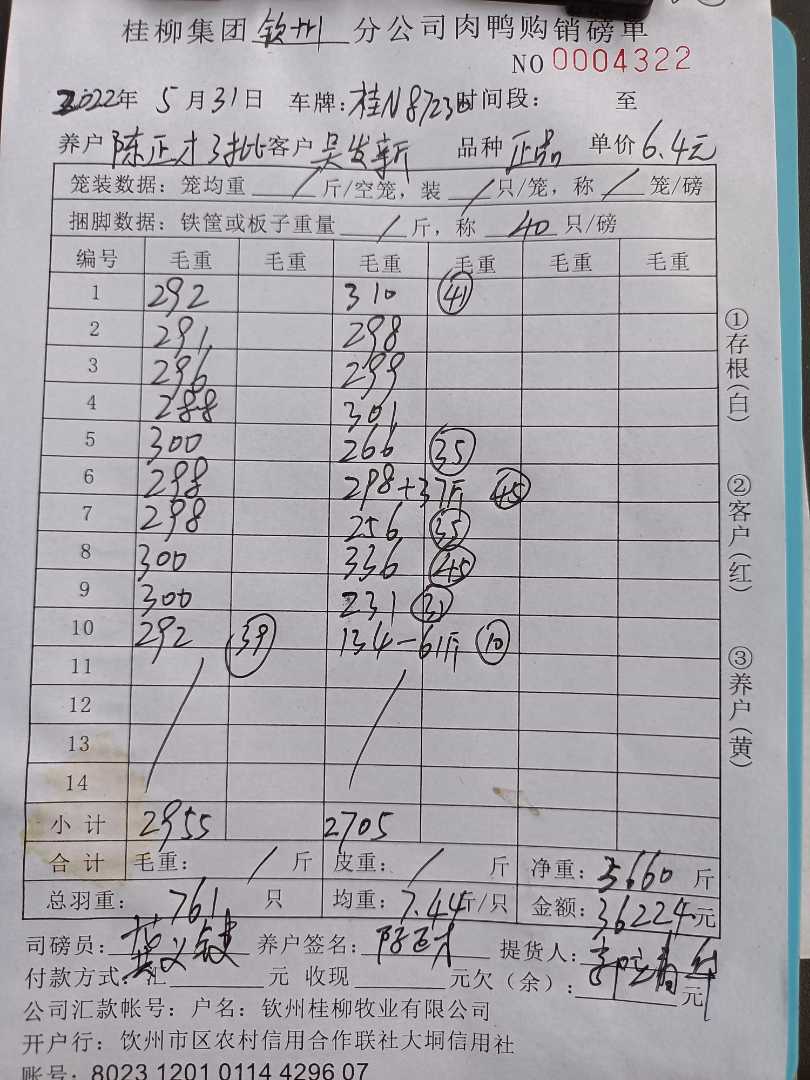 桂柳集团 钦州 分公司肉鸭购销磅单
NO 0004322
2022年 5 月 31 日 车牌: 桂N8723 时间段: 至
养户 陈正才3批 客户 吴发新 品种 正品 单价 6.4元
笼装数据: 笼均重 / 斤/空笼, 装 / 只/笼, 称 / 笼/磅
捆脚数据: 铁筐或板子重量 / 斤, 称 40 只/磅
编号 毛重 毛重 毛重 毛重 毛重 毛重
1 292 310 41
2 291 298
3 296 299
4 288 301
5 300 266 35
6 298 298+37斤 45
7 298 256 35
8 300 336 45
9 300 231 31
10 292 39 134-61斤 10
11
12
13
14
小计 2955 2705
合计 毛重: / 斤 皮重: / 斤 净重: 5660 斤
总羽重: 761 只 均重: 7.44斤/只 金额: 36224元
司磅员: 养户签名: 陈正才 提货人:
付款方式: 汇 元 收现 元欠(余): 元
公司汇款帐号: 户名: 钦州桂柳牧业有限公司
开户行: 钦州市区农村信用合作联社大垌信用社
账号: 8023 1201 0114 4296 07
①存根(白)
②客户(红)
③养户(黄)